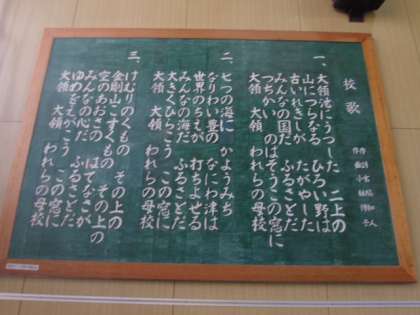 校歌
作詞
作曲
一、
大領池にうつした 二上の
山につらなる ひろい野は
古いれきしが たがやした
みんなの国だ ふるさとだ
つちかい のばそうこの窓に
大領 大領 われらの母校
二、
七つの海に かようみち
なりわい豊の なにわ津は
世界のちえが 打ちよせる
みんなの海だ ふるさとだ
大きくひらこう この窓に
大領 大領 われらの母校
三、
けむりのくもの その上の
金剛山こすくもの その上の
空のあおさの はてなさが
みんなの心だ ふるさとだ
ゆめをえがこう この窓に
大領 大領 われらの母校